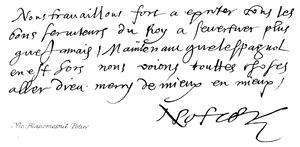 Nous travaillons fort a exorter tous les
bons serviteurs du Roy a sesvertuer plus
que Jamais / Maintenant que lespagnol
en est hors nous voions touttes choses
aller dieu mercy de mieux en mieux /
Potier
Nic. Blancmesnil Potier